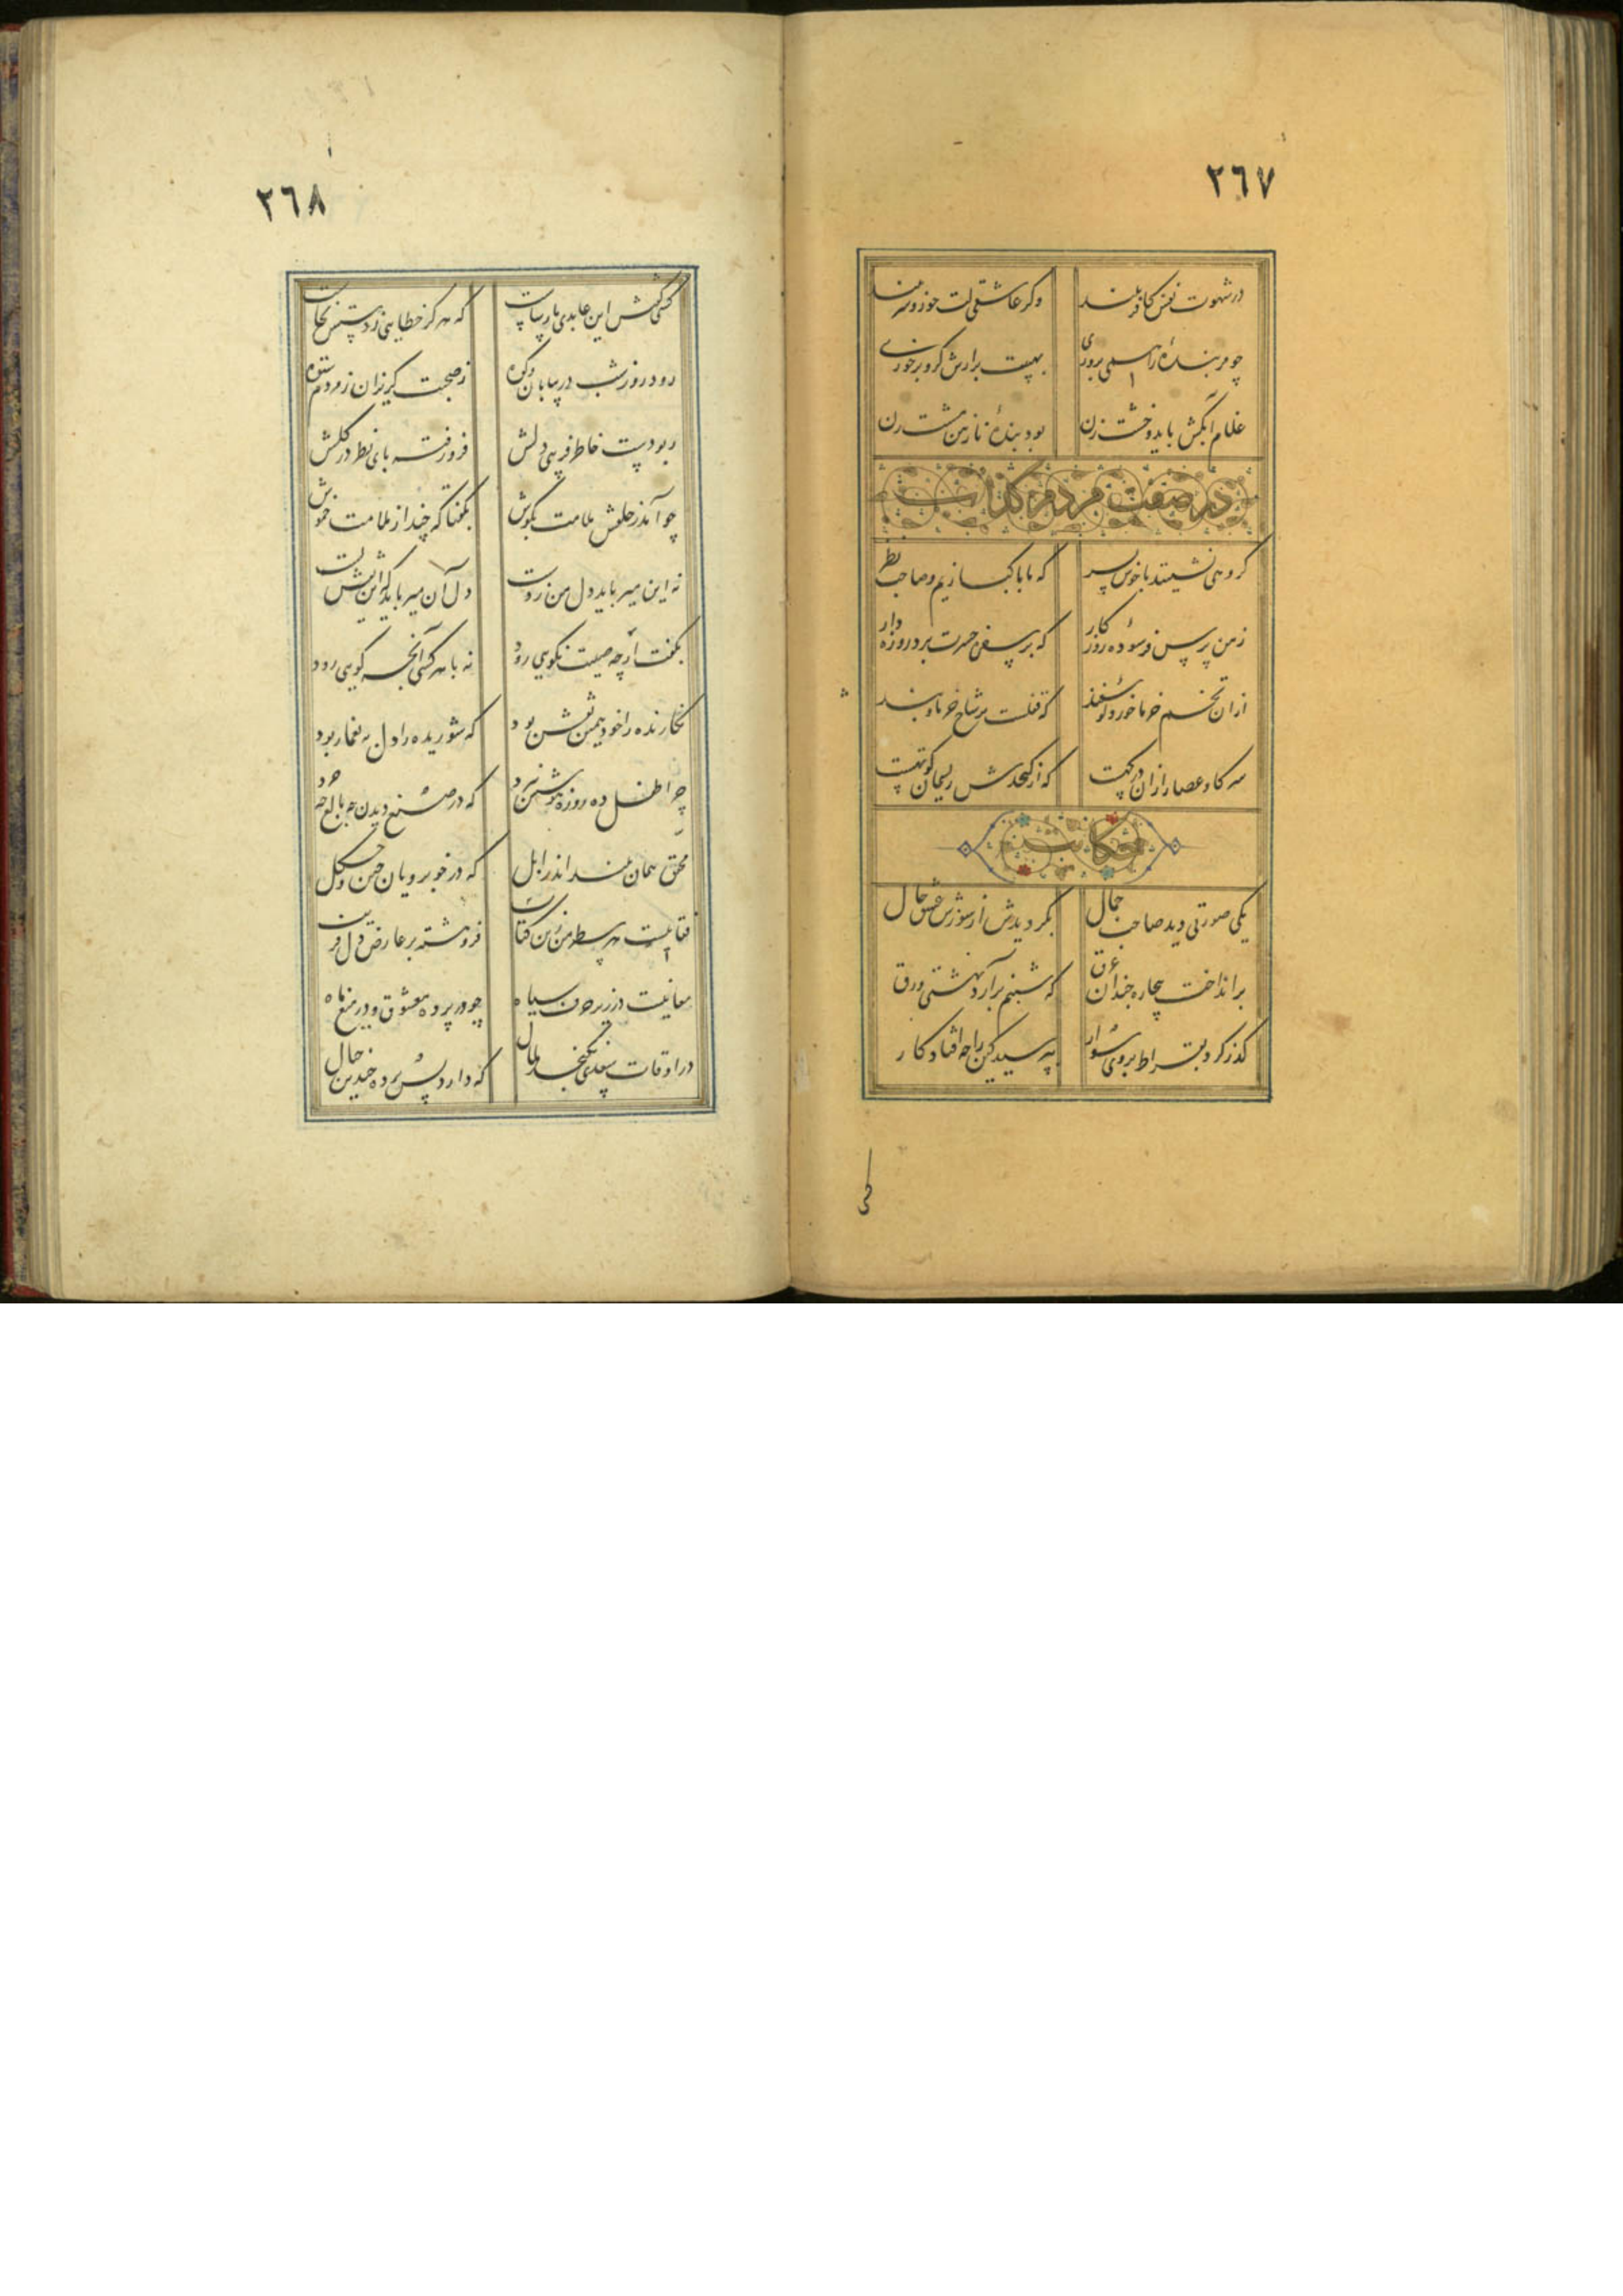 ٢٦٧
در شهوت نفس کافر ببند وگر عاشقی لت خور و سر ببند
چو مر بنده‌ٔ را همی پروری بهیبت برارش کزو برخوری
غلام آبکش باید و خشت زن بود بنده‌ٔ نازنین مشت زن
در صفت مردم کذاب
گروهی نشینند با خوش پسر که ما پاکبازیم و صاحب نظر
ز من پرس فرسوده‌ٔ روزگار که بر سفره حسرت برد روزه دار
ازان تخم خرما خورد گوسفند که قفلست بر شاخ خرما و بند
سر گاو عصار ازان در کهست که از کنجدش ریسمان کوتهست
حکایت
یکی صورتی دید صاحب جمال بگردیدش از سوزش عشق حال
برانداخت بیچاره چندان عرق که شبنم برآرد بهشتی ورق
گذر کرد بقراط بر وی سوار بپرسید کین را چه افتاد کار
٢٦٨
کسی گفتش این عابدی پارساست که هرگز خطایی ز دستش نخاست
رود روز و شب در بیابان و کوه ز صحبت گریزان ز مردم ستوه
ربودست خاطر فریبی دلش فرو رفته پای نظر در گلش
چو آید ز خلقش ملامت بگوش بگفتا که چند از ملامت خموش
نه این میرباید دل من ز دست دل آن میرباید که این نقش بست
بگفت ار چه صیت نکویی رود نه با هر کسی آنچه گویی رود
نگارنده را خود همین نقش بود که شوریده را دل بیغما ربود
چرا طفل ده روزه هوشش نبرد که در صنع دیدن چه بالغ چه خرد
محقق همان بیند اندر ابل که در خوبرویان چین و چگل
نقابیست هر سطر من زین کتاب فروهشته بر عارض دل فریب
معانیست در زیر حرف سیاه چو در پرده معشوق و در میغ ماه
در اوقات سعدی نگنجد ملال که دارد پس پرده چندین جمال